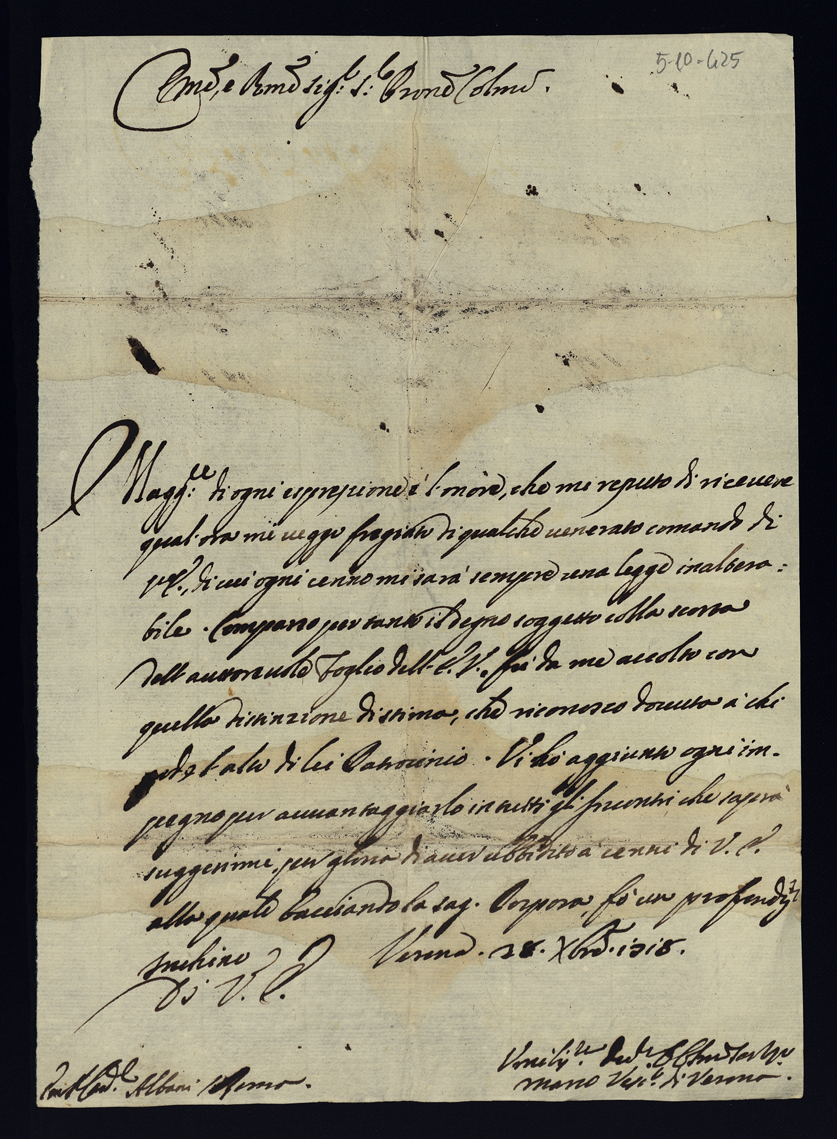 5-10-425
Em̃o, e Rm̃o Sig.r S.r Proñe Colm̃o.
Magg.re di ogni espressione è l'onore, che me reputo di ricevere
qual'ora mi veggo fregiato di qualche venerato comando di
V.E., di cui ogni cenno mi sarà sempre una legge inaltera=
bile. Comparso per tanto il degno soggetto colla scorta
dell'autorevole Foglio dell'E.V. fù da me accolto con
quella distinzione di stima, che riconosco dovuta à chi
gode l'alto di lei Patrocinio. Vi hò aggiunto ogni im-
pegno per avvantaggiarlo in tutti gl'Incontri che saprà
suggerirmi, per gloria di aver ubbidito à cenni di V.E.
alla quale bacciando la sag. Porpora, fò un profondiss.
inchino
Di V.E. Verona. 28. Xbrẽ. 1718.
Em̃o Card.l Albani Roma.
Umiliss.
mano Vesc.o di Verona.